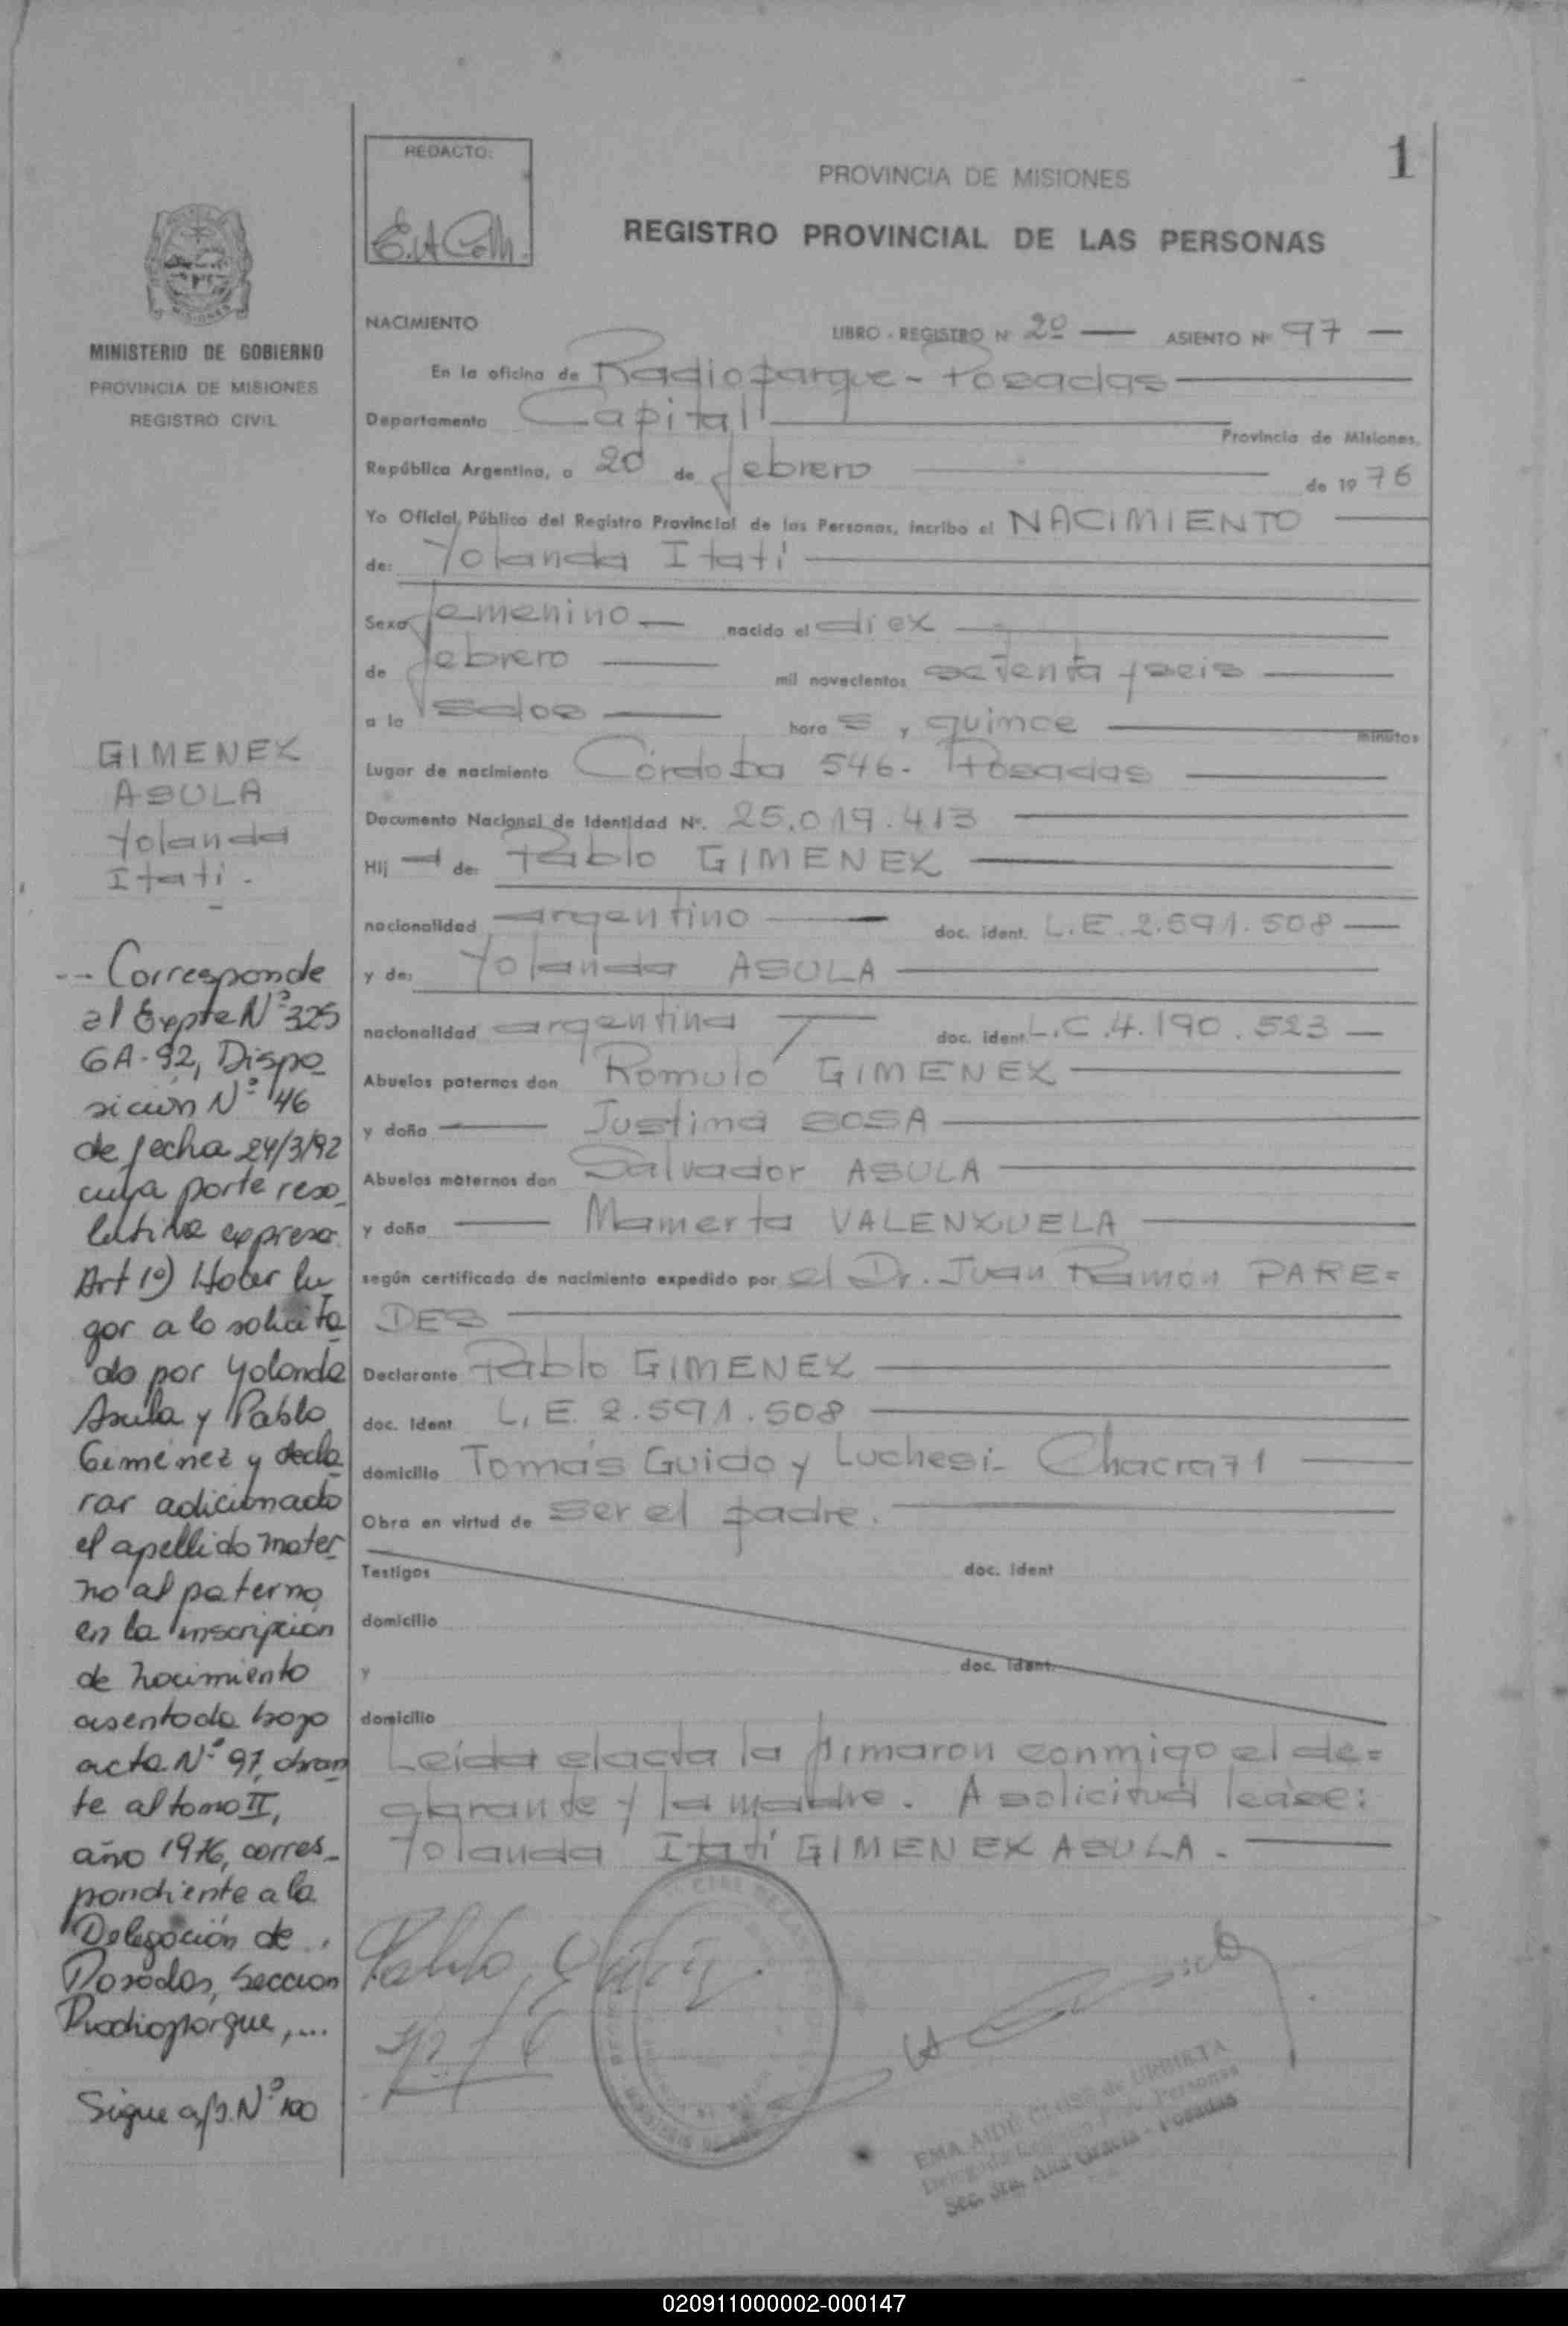 REDACTO:
PROVINCIA DE MISIONES
1
REGISTRO PROVINCIAL DE LAS PERSONAS
MINISTERIO DE GOBIERNO
PROVINCIA DE MISIONES
REGISTRO CIVIL
NACIMIENTO LIBRO - REGISTRO Nº 2º — ASIENTO Nº 97 —
En la oficina de Radioparque - Posadas
Departamento Capital Provincia de Misiones.
República Argentina, a 20 de febrero de 19 76
Yo Oficial Público del Registro Provincial de las Personas, incribo el NACIMIENTO
de: Yolanda Itatí
Sexo femenino — nacido el diez
de febrero — mil novecientos setenta y seis
a la s dos — hora s, y quince minutos
Lugar de nacimiento Córdoba 546 - Posadas
Documento Nacional de Identidad Nº. 25.019.413
Hij a de: Pablo GIMENEZ
nacionalidad argentino — doc. ident. L.E. 2.591.508 —
y de: Yolanda ASULA
nacionalidad argentina — doc. ident. L.C. 4.190.523 —
Abuelos paternos don Romulo GIMENEZ
y doña — Justina SOSA
Abuelos maternos don Salvador ASULA
y doña — Mamerta VALENZUELA
según certificado de nacimiento expedido por el Dr. Juan Ramón PARE=
DES
Declarante Pablo GIMENEZ
doc. Ident L.E. 2.591.508
domicilio Tomás Guido y Luchesi - Chacra 71
Obra en virtud de ser el padre.
Testigos doc. ident
domicilio
y doc. ident.
domicilio
Leída el acta la firmaron conmigo el de=
clarante y la madre. A solicitud lease:
Yolanda Itatí GIMENEZ ASULA. —
GIMENEZ
ASULA
Yolanda
Itatí.
-- Corresponde
al Expte Nº 325
GA-92, Dispo
sición Nº 46
de fecha 24/3/92
cuya parte reso
lutiva expresa
Art 1º) Hacer lu
gar a lo solicita
do por Yolanda
Asula y Pablo
Giménez y decla
rar adicionado
el apellido mater
no al paterno
en la inscripción
de nacimiento
asentada bajo
acta Nº 97, obran
te al tomo II,
año 1976, corres-
pondiente a la
Delegación de
Posadas, Sección
Radioparque, ...
Sigue a/f. Nº 100
EMA AIDE de URRIETA
Sec. Sta. Ana Gracia - Posadas
020911000002-000147